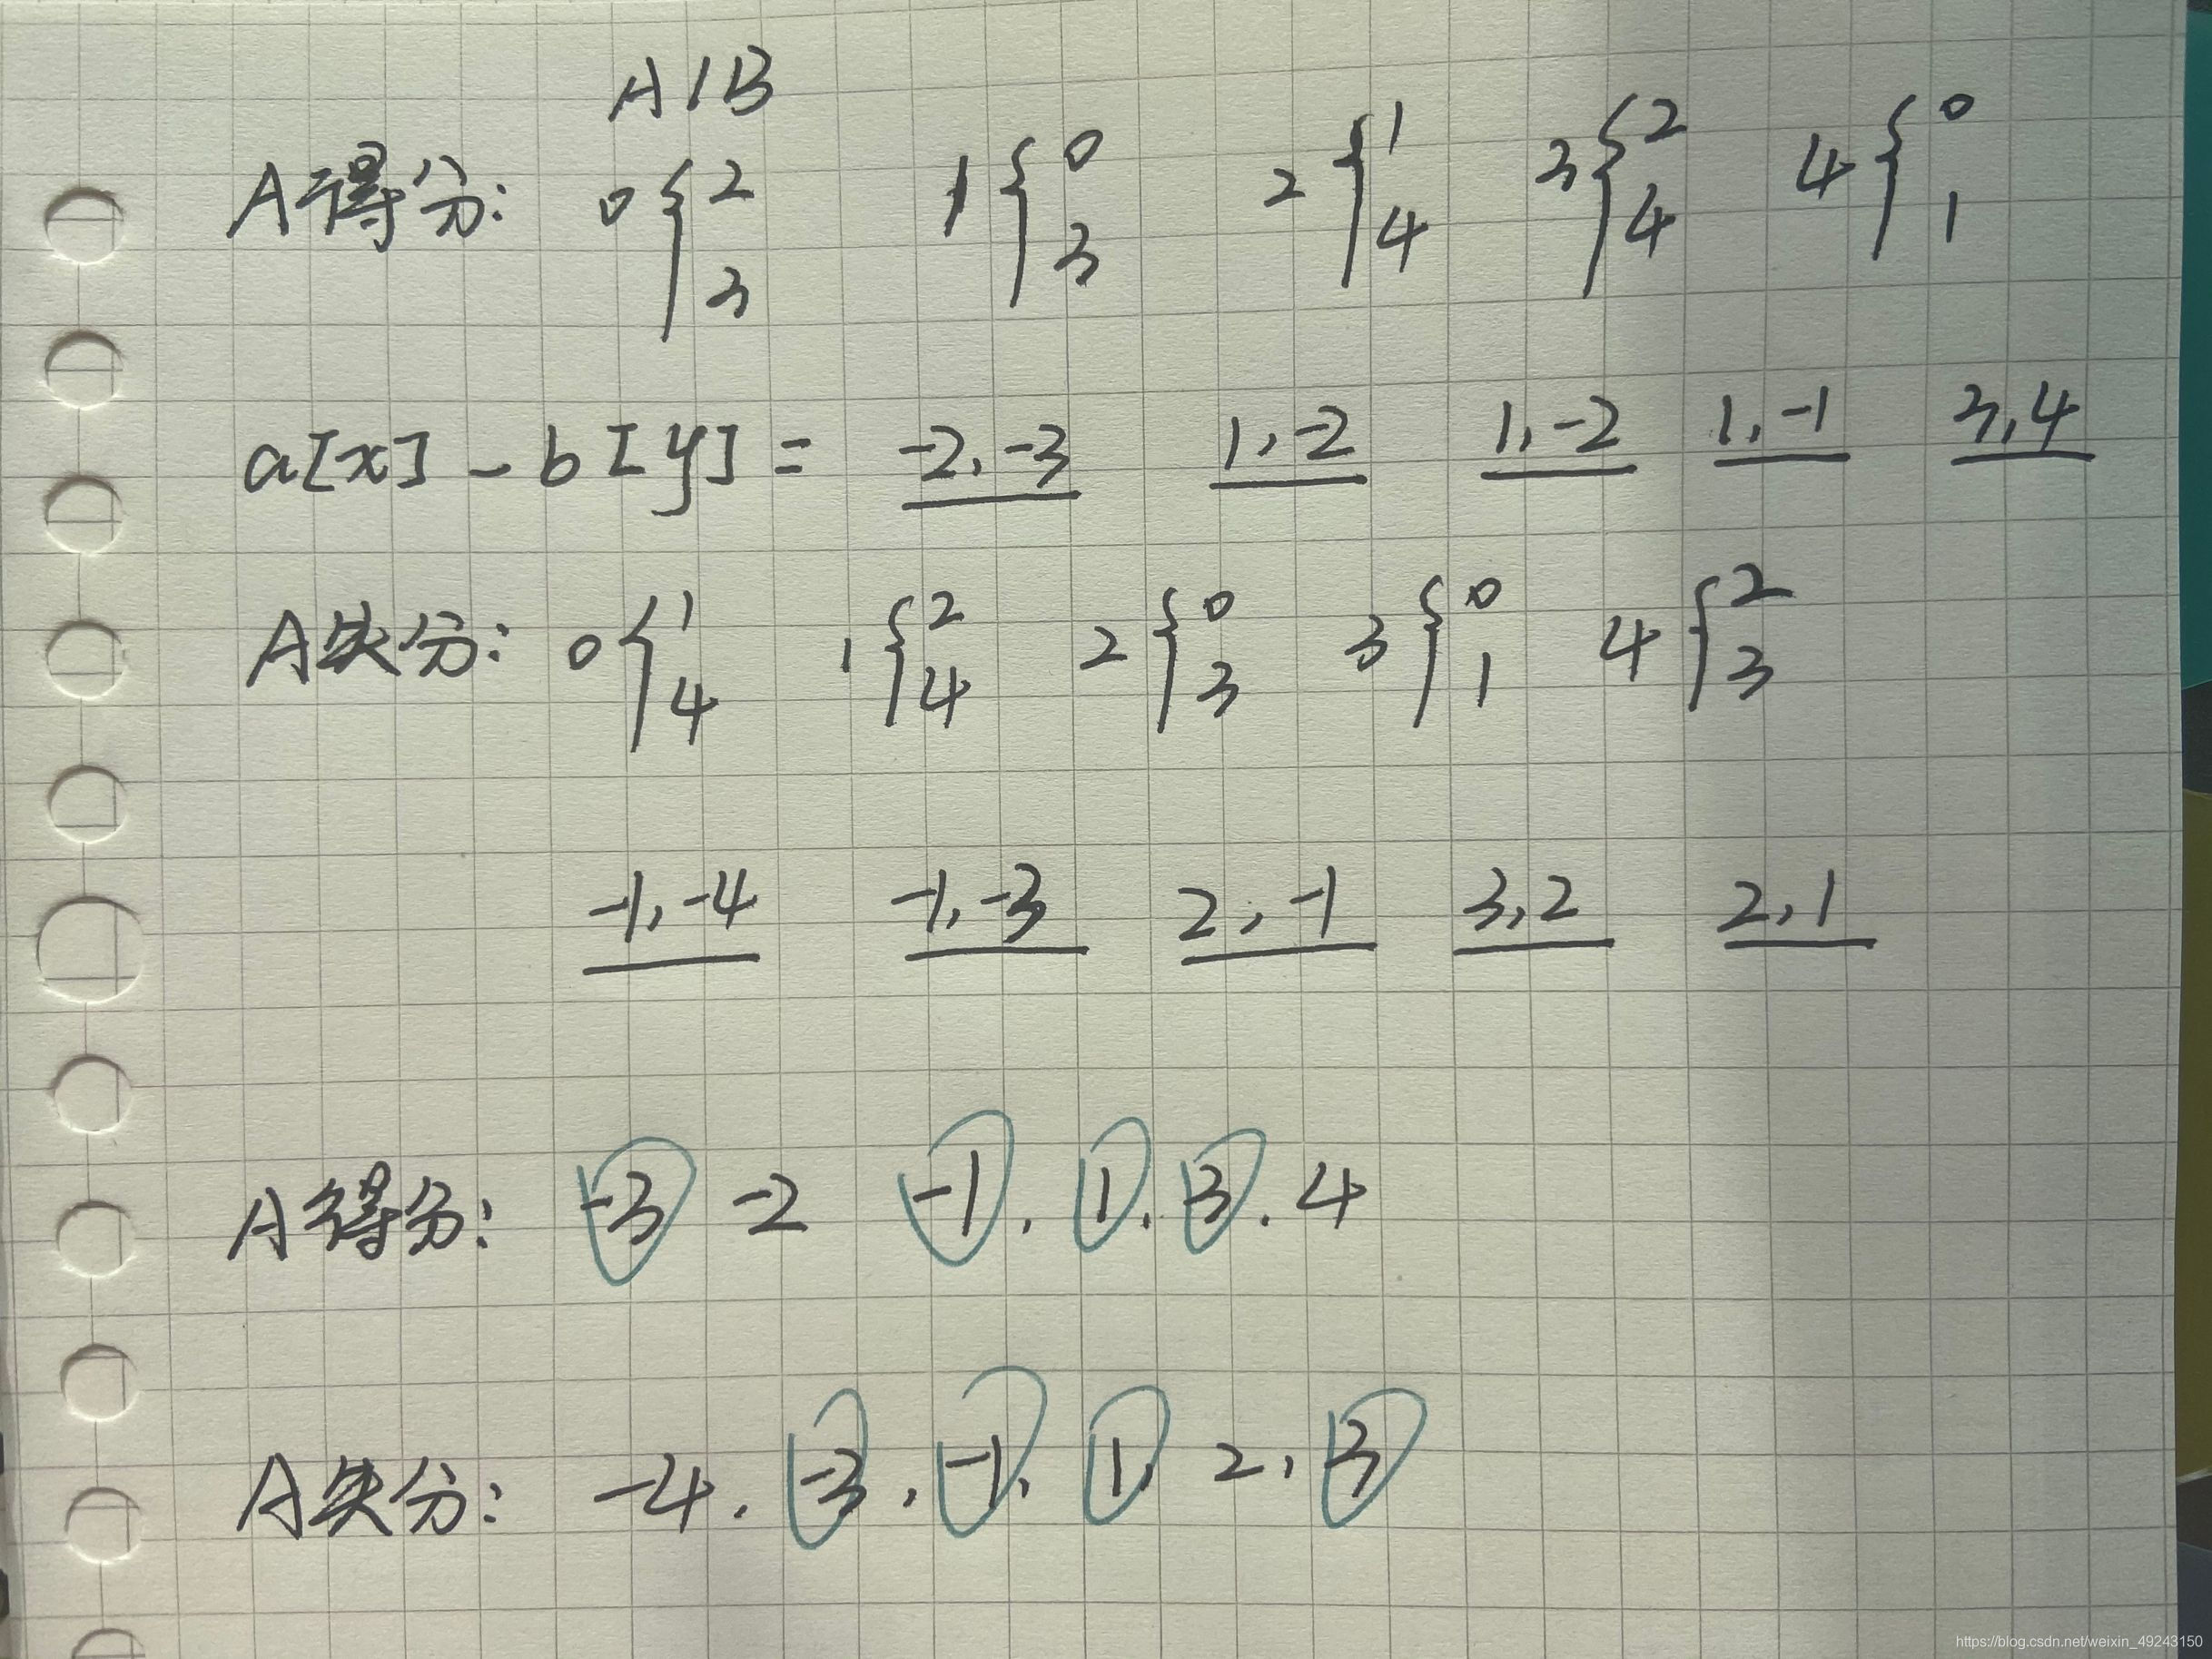 A/B
A得分: 0{2 3 1{0 3 2{1 4 3{2 4 4{0 1
a[x] - b[y] = -2,-3 1,-2 1,-2 1,-1 3,4
A失分: 0{1 4 1{2 4 2{0 3 3{0 1 4{2 3
-1,-4 -1,-3 2,-1 3,2 2,1
A得分: -3 -2 -1. 1. 3. 4
A失分: -4. -3, -1, 1, 2, 3
https://blog.csdn.net/weixin_49243150